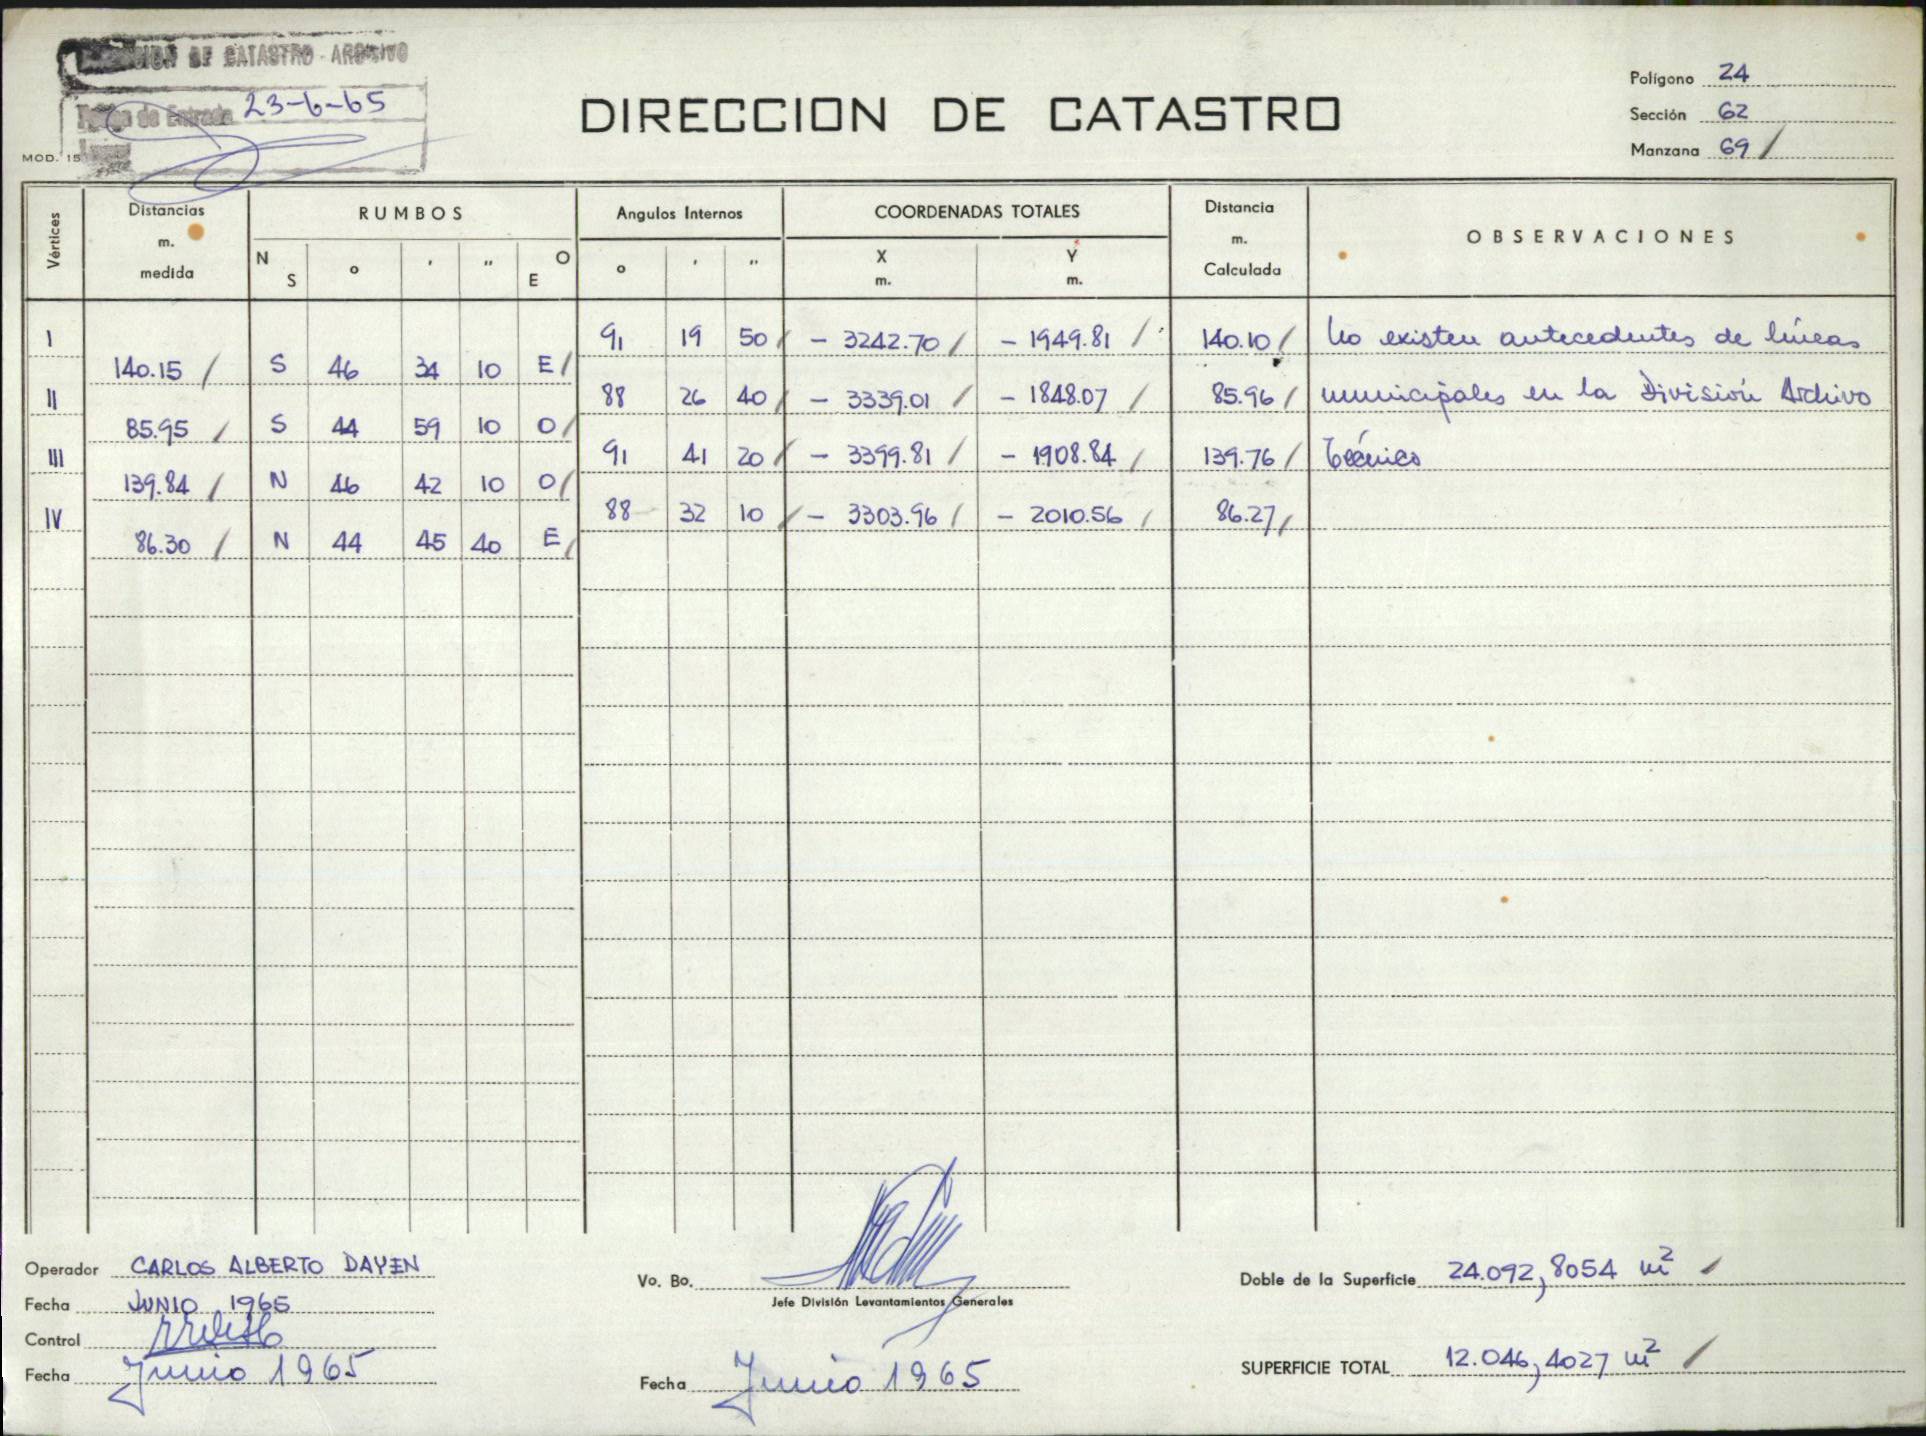 DE CATASTRO - ARCHIVO
Fecha de Entrada 23-6-65
MOD. 15
DIRECCION DE CATASTRO
Polígono 24
Sección 62
Manzana 69 /
Vértices
Distancias m. medida
RUMBOS
N S ° ' " O E
Angulos Internos
° ' "
COORDENADAS TOTALES
X m. Y m.
Distancia m. Calculada
OBSERVACIONES
I 91 19 50 / - 3242.70 / - 1949.81 / 140.10 / No existen antecedentes de líneas
140.15 / S 46 34 10 E /
II 88 26 40 / - 3339.01 / - 1848.07 / 85.96 / municipales en la División Archivo
85.95 / S 44 59 10 O /
III 91 41 20 / - 3399.81 / - 1908.84 / 139.76 / Técnico
139.84 / N 46 42 10 O /
IV 88 32 10 / - 3303.96 / - 2010.56 / 86.27 /
86.30 / N 44 45 40 E /
Operador CARLOS ALBERTO DAYEN
Fecha JUNIO 1965
Control
Fecha Junio 1965
Vo. Bo.
Jefe División Levantamientos Generales
Fecha Junio 1965
Doble de la Superficie 24.092,8054 m² /
SUPERFICIE TOTAL 12.046,4027 m² /